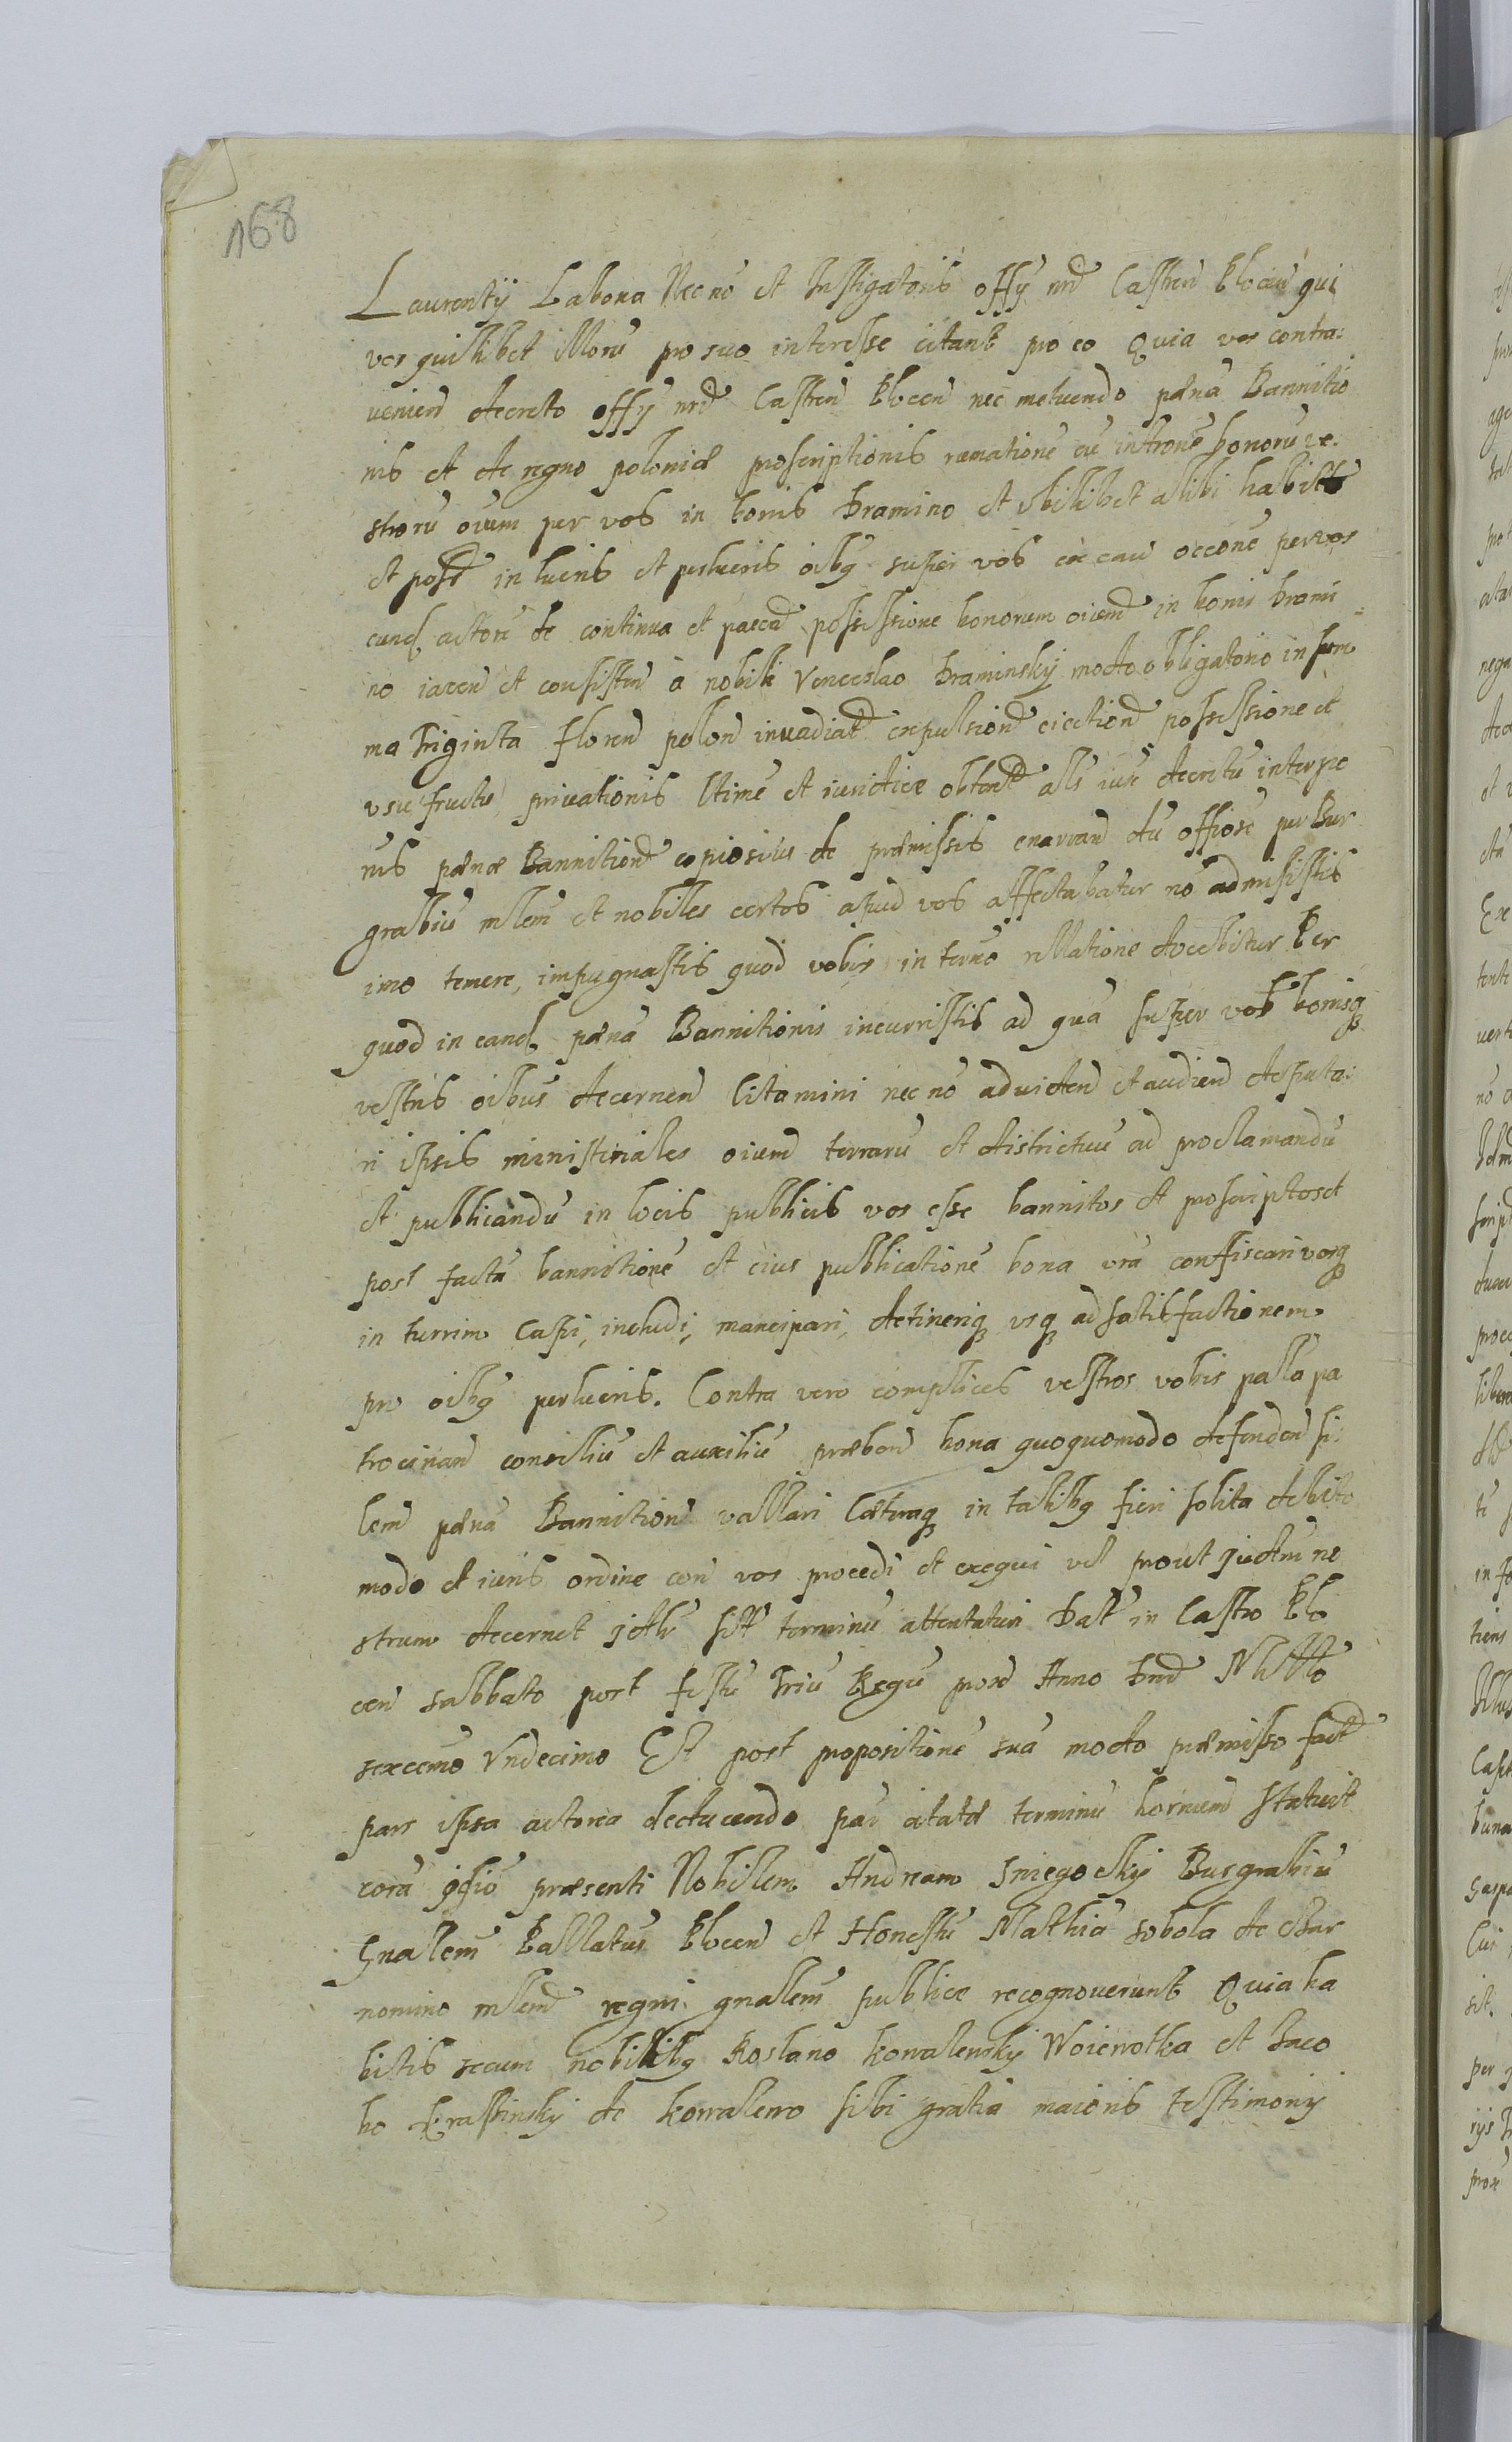 168
Laurentij Labona Nec nō et Instigatoris offÿ nrd Castren Plocen qui
vos quilibet illorū pro suo interesse citant pro eo Quia vos contra:
uenien decreto offÿ nrd Castren Plocen nec metuendo pænā Bannitio
nis et de regno poloniæ proscriptionis ræmatione cū introne bonorū ve.
strorū oium per vos in bonis Dramino et vbilibet alibi habit
et possd in lucris et perlucris oibq super vos ex cau occone per vos
eand actori de continua et pacad possessione bonorum oiumd in bonis Drami
no iacen et consisten à nobili Venceslao Draminskij modo obligatorio in sum
ma Triginta floren polon inuadiatd expulsiond eiectiond possessione et
vsufructu priuationis ltime et iuridice obtentd als iux decretū interpo
nis pænæ Bannitiond copiosius de præmissis enarran dū offiose per Bur
grabiū mlem et nobiles certos apud vos affectabatur nō admisistis
imo temere, impugnastis quod vobis in terno rellatione docebitur Per
quod in eand pænā Bannitionis incurristis ad quā super vos bonisq
vestris oibus decernen Citamini nec nō ad viden et audien deputa:
ri ipsis ministeriales oiumd terrarū et districtuū ad proclamandū
et publicandū in locis publicis vos esse bannitos et proscriptos et
post factā bannitionē et eius publicationē bona vrā confiscari vosq
in turrim Capi, includi, mancipari, detineriq vsq ad satisfactionem
pro oibq perlucris. Contra vero complices vestros vobis palla pa
trocinan consiliū et auxiliū præben bona quoquomodo defenden si:
lem pænā Bannitiond vallari Cæteraq in talibq fieri solita debito
modo et iuris ordine con vos procedi et exequi vel prout Judm ne
strum decernet Jdb sitt terminū attentaturi Datt in Castro Plo
cen sabbato post festū Triū Regū proxd Anno Dnd Millo
sexcemo Vndecimo Et post propositionē suā modo præmisso factd
pars ipsa actorea deducendo par citatæ terminū hornumd statuit
corā Jdio præsenti Nobilem Andream Sniegockij Burgrabiū
Gnalem Pallatus Plocen et Honestū Mathiā Sobola de Char
nomino mlemd regni gnalem publice recognouerunt Quia ha
bitis secum nobilibq Roslano Kowalewskij Woiewotka et Jaco
bo Krassinskij de Kowalewo sibi gratia maioris testimonij